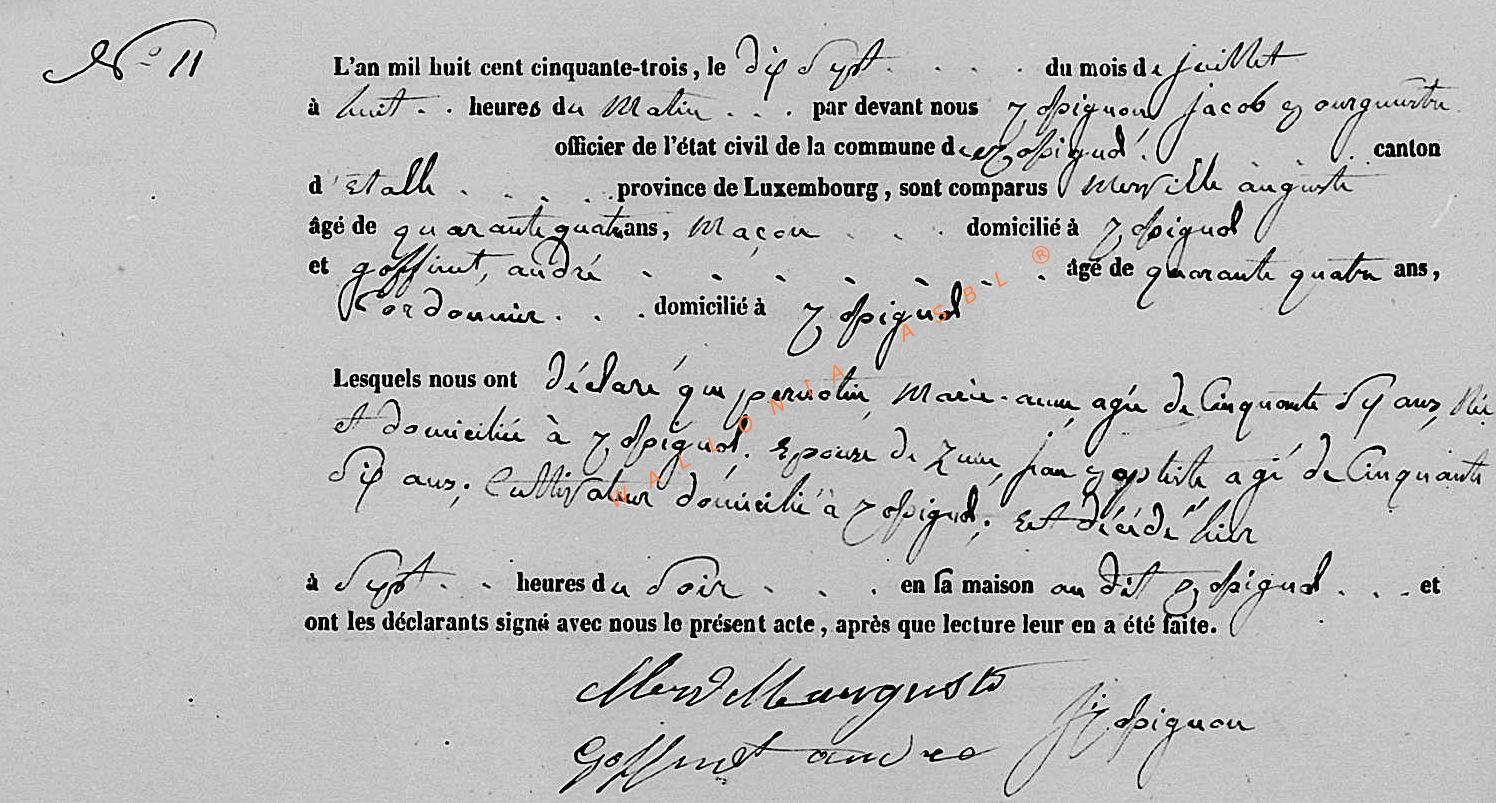 N° 11
L'an mil huit cent cinquante-trois, le dix Sept . . . . du mois de juillet
à huit . . heures du Matin . . . par devant nous Rossignon jacob Bourguestre
officier de l'état civil de la commune de Rossignol . . canton
d'Etalle . . . . province de Luxembourg, sont comparus Merville auguste
âgé de quarante quatre ans, Maçon . . . domicilié à Rossignol
et goffinet, andré . . . . . . . âgé de quarante quatre ans,
Cordonnier . . . domicilié à Rossignol
Lesquels nous ont déclaré que Marie-anne agée de Cinquante Six ans, Née
et domiciliée à Rossignol. Epouse de jean Baptiste agé de Cinquante
Six ans, Cultivateur domicilié à Rossignol, Est décédé hier
à Sept . . heures du Soir . . . en sa maison au dit Rossignol . . . et
ont les déclarants signé avec nous le présent acte, après que lecture leur en a été faite.
Merville auguste
J. Rossignon
Goffinet andre
WALLONIA ASBL ®